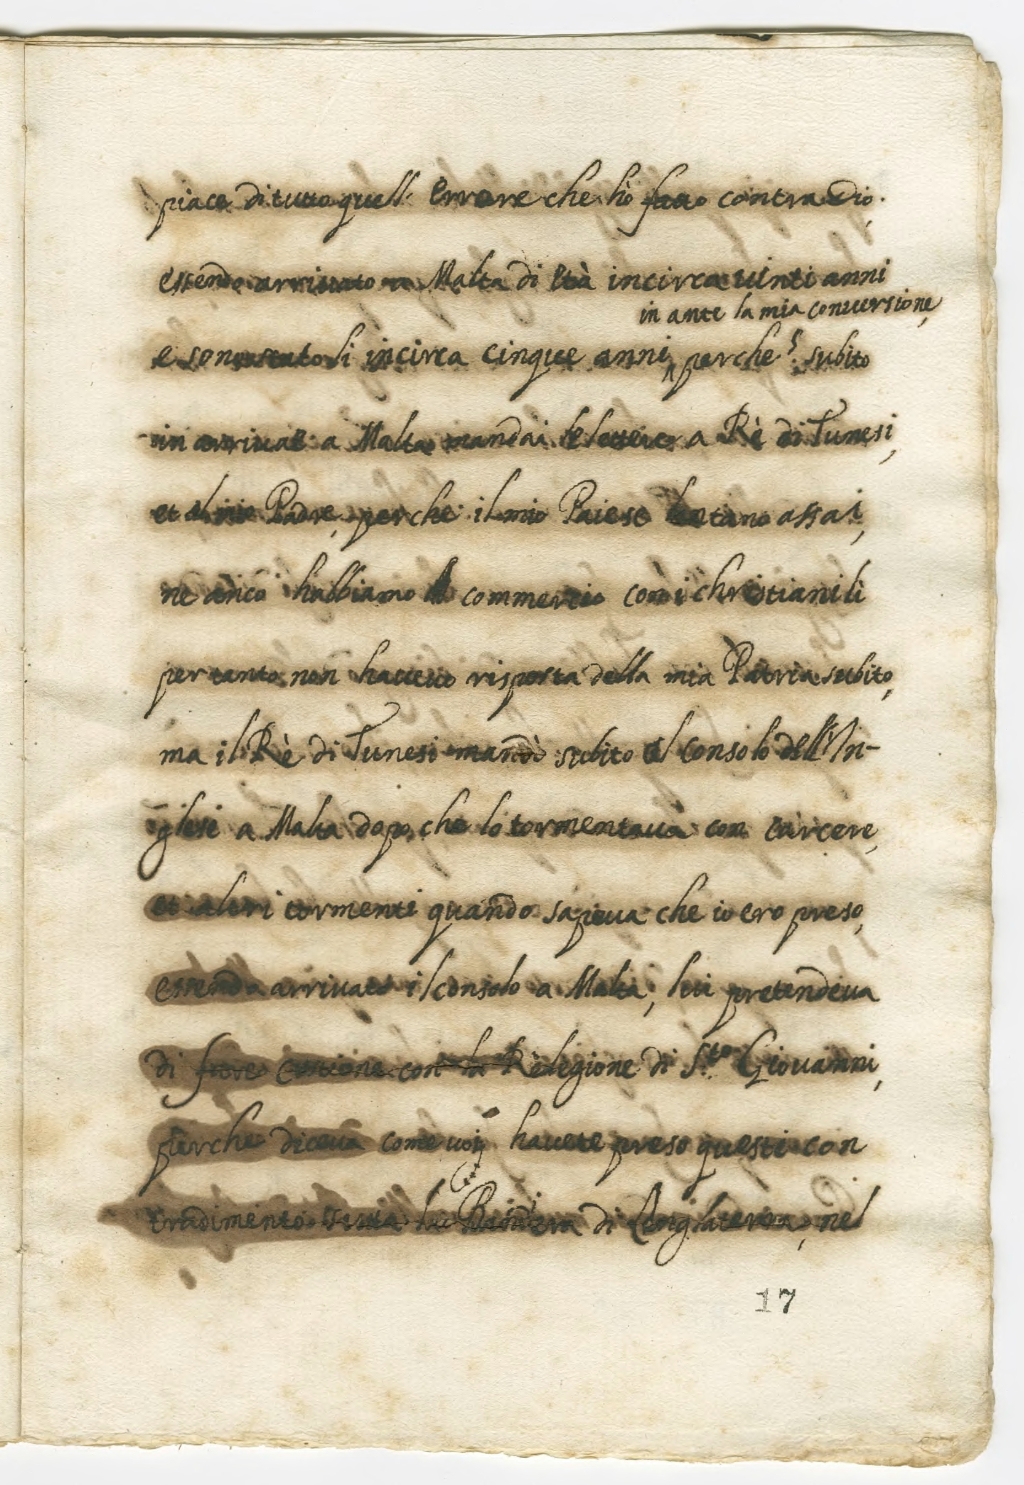 piace di tutto quell' errore che hò fatto contra Dio.
essendo arriuato a Malta di Età incirca uinti anni
in ante la mia conuersione,
e son restato li incirca cinque anni perche subito
in arriuar a Malta mandai le lettere a Rè di Tunesi,
et al mio Padre, perche il mio Paiese lontano assai,
ne anco habbiamo commercio con i christiani li
per tanto non haueuo risposta della mia Patria subito,
ma il Rè di Tunesi mandò subito il consolo dell' In-
glesi a Malta dopo, che lo tormentaua con carcere,
et altri tormenti quando sapeua che io ero preso,
essendo arriuato il consolo a Malta, lui pretendeua
di con la Relegione di S.to Giouanni,
perche diceua come uoi hauete preso questi con
tradimento la Bandiera di Lenglaterra, nel
17